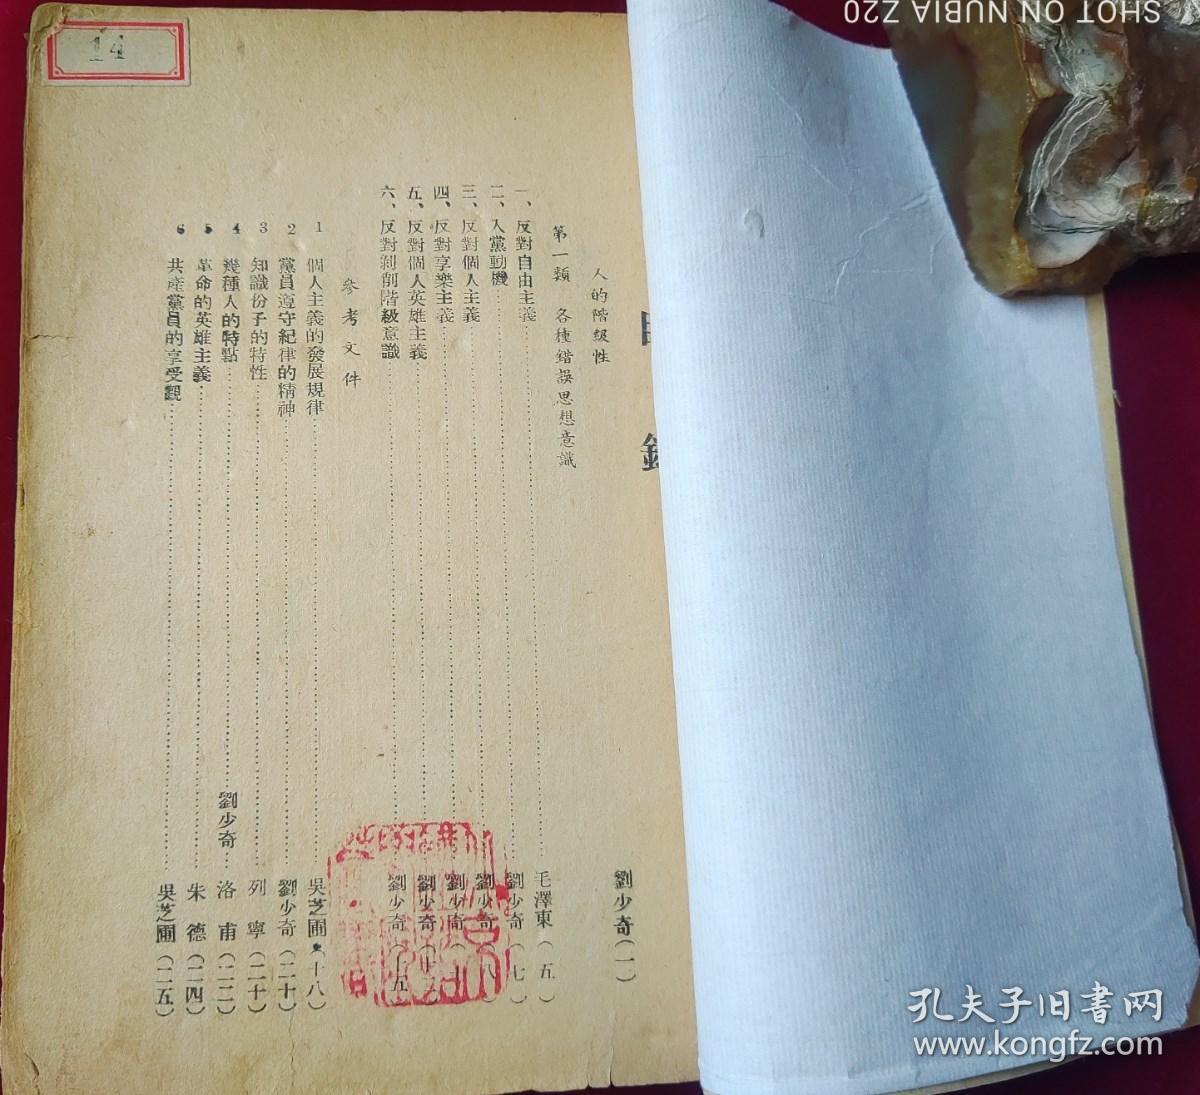 人的階級性 劉少奇(一)
第一類 各種錯誤思想意識
一、反對自由主義 毛澤東(五)
二、入黨動機 劉少奇(七)
三、反對個人主義 劉少奇(八)
四、反對享樂主義 劉少奇(十
五、反對個人英雄主義 劉少奇
六、反對剝削階級意識 劉少奇(十五
參考文件
1 個人主義的發展規律 吳芝圃(十八)
2 黨員遵守紀律的精神 劉少奇(二十)
3 知識份子的特性 列寧(二十)
4 幾種人的特點 劉少奇 洛甫(二二)
5 革命的英雄主義 朱德(二四)
6 共產黨員的享受觀 吳芝圃(二五)
14
SHOT ON NUBIA Z20
孔夫子旧书网
www.kongfz.com